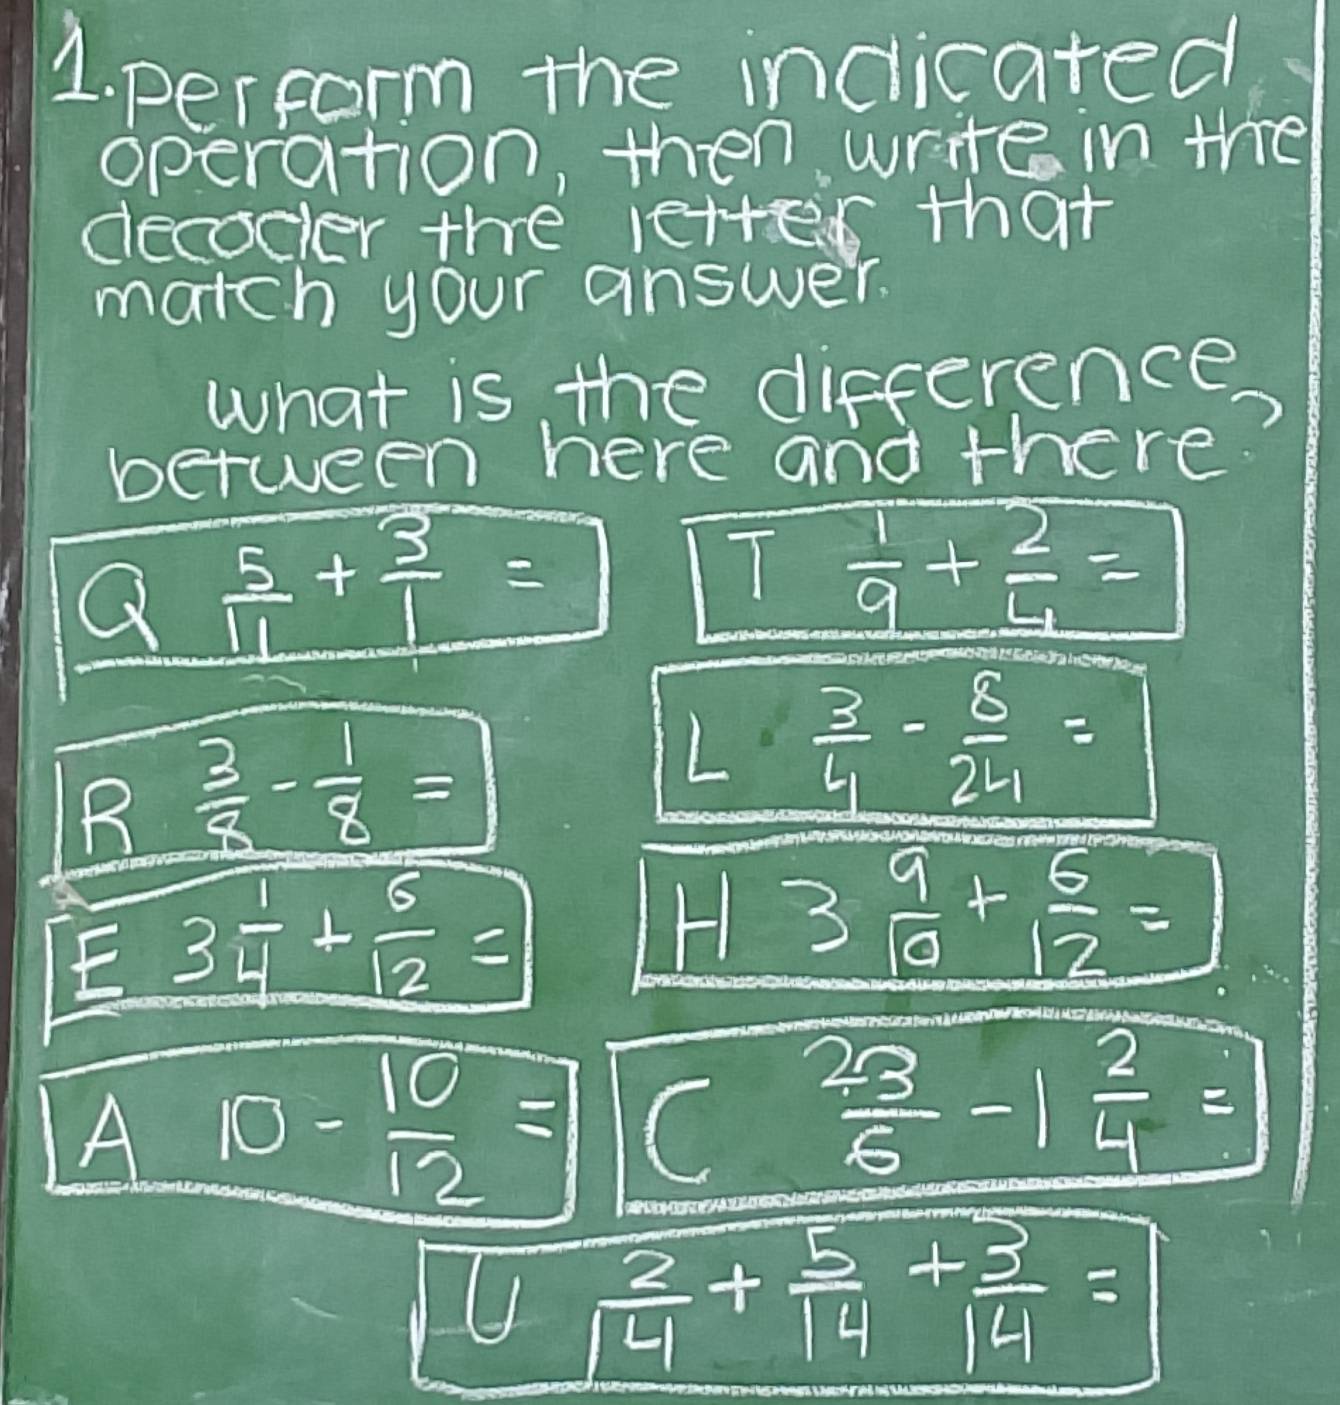 1. perform the indicated
operation, then write in the
decoder the letter that
match your answer.
what is the difference,
between here and there.
Q 5/11 + 3/1 =
T 1/9 + 2/4 =
R 3/8 - 1/8 =
L 3/4 - 8/24 =
E 3 1/4 + 6/12 =
H 3 9/10 + 6/12 =
A 10 - 10/12 =
C 23/6 - 1 2/4 =
U 2/14 + 5/14 + 3/14 =